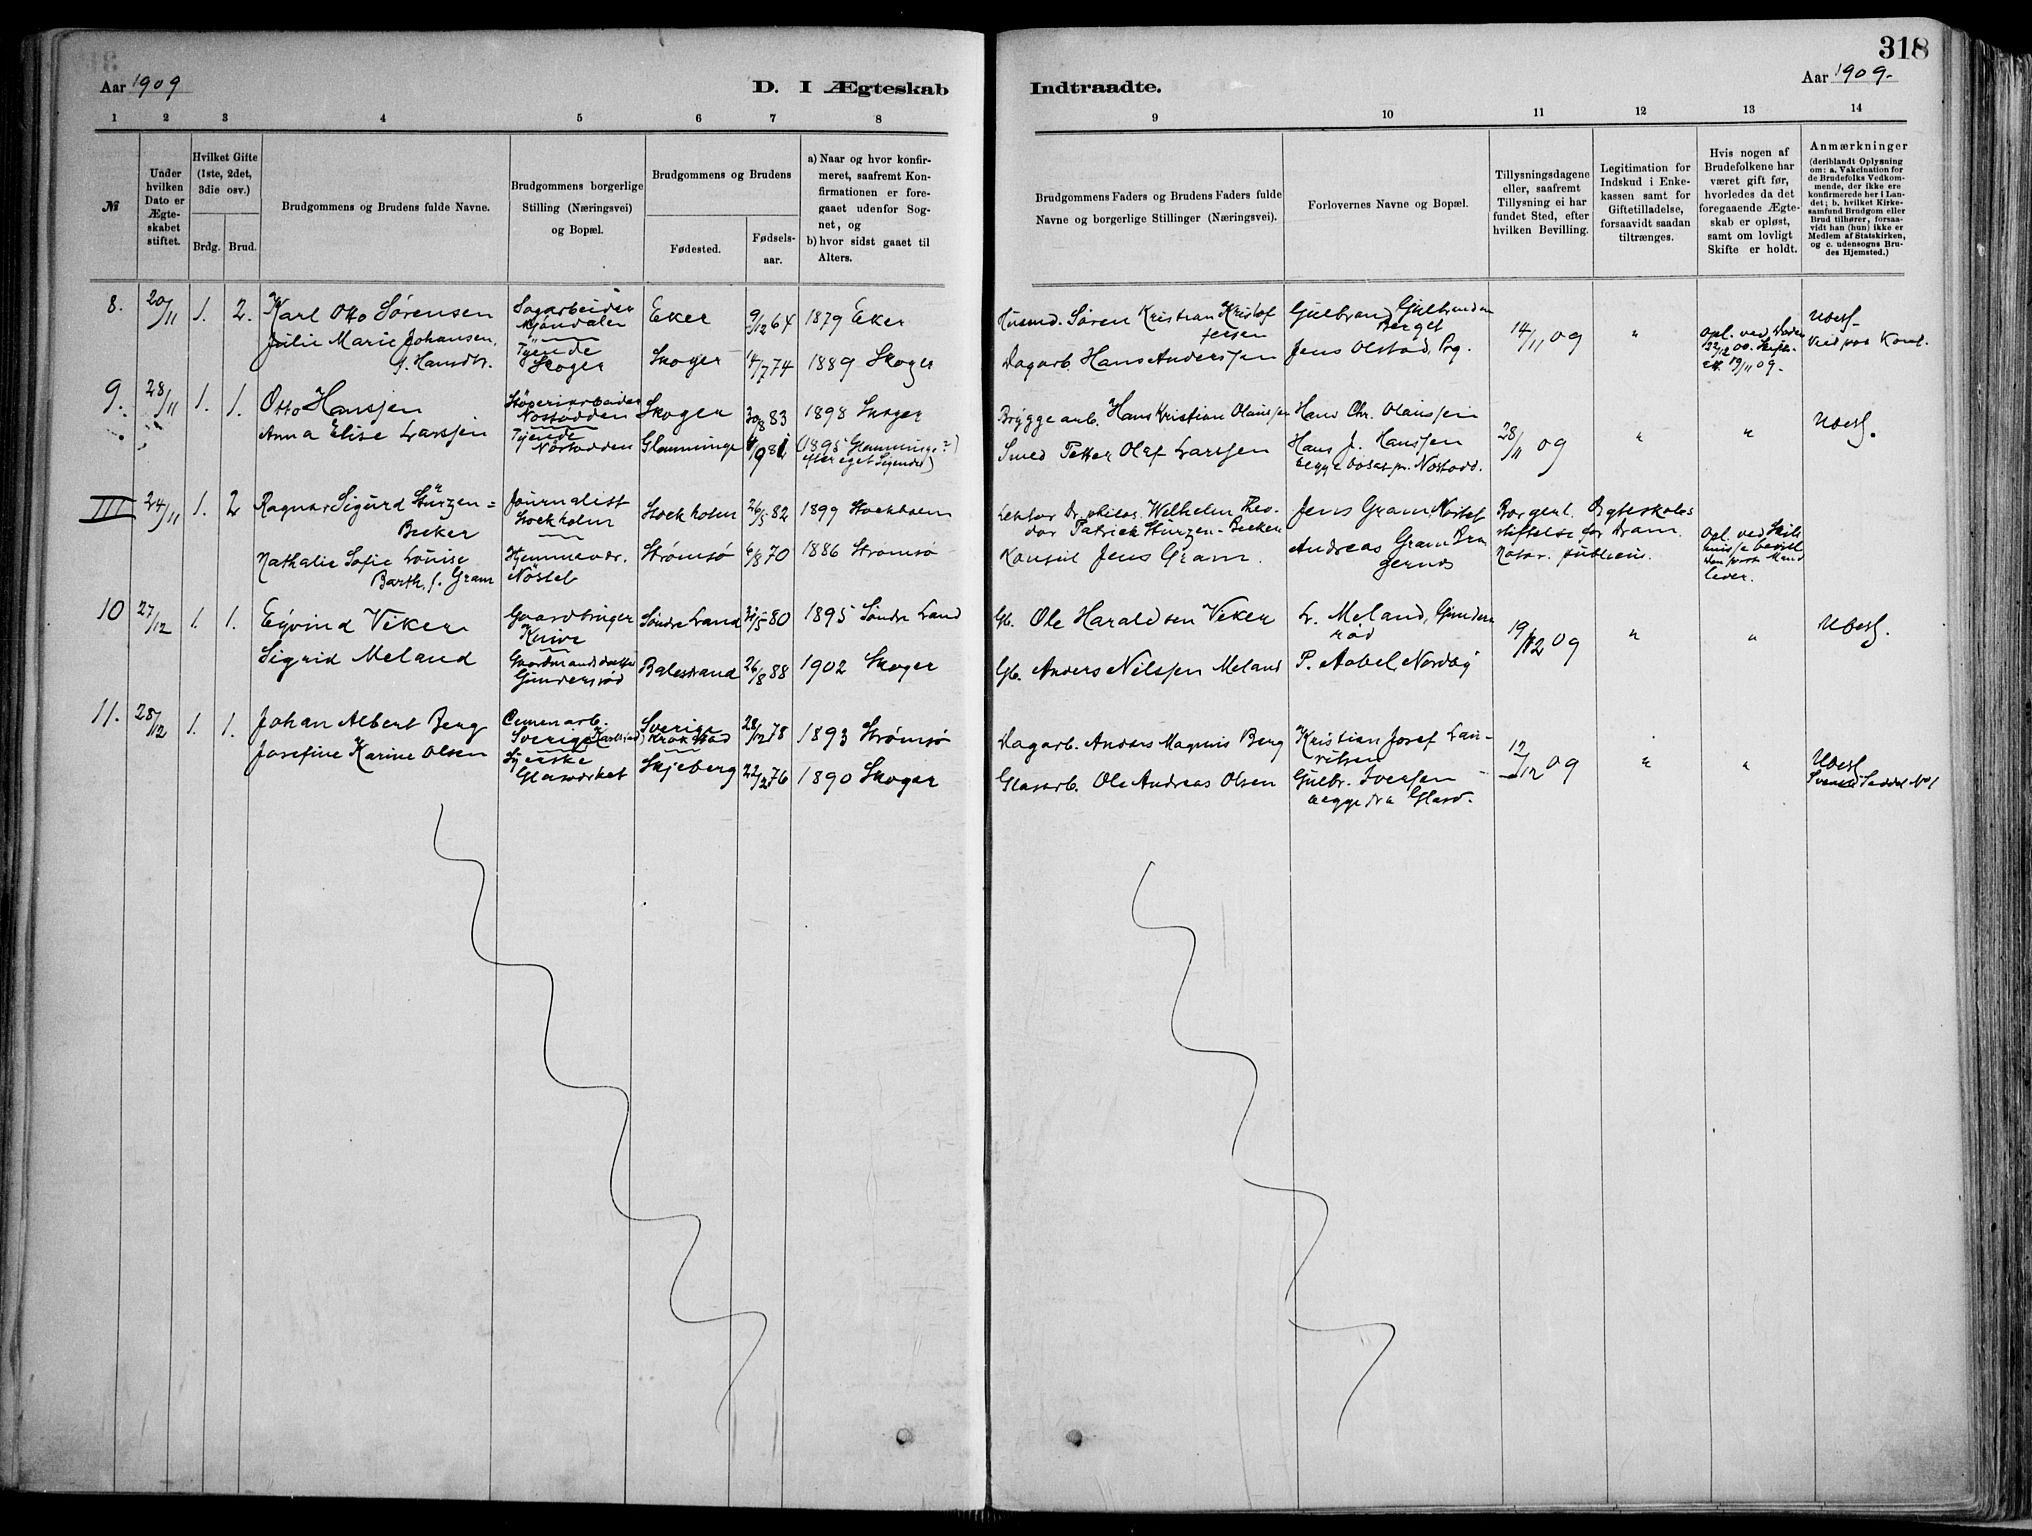 318
Aar 1909
D. I Ægteskab
Indtraadte.
Aar 1909.
1 2 3 4 5 6 7 8
9 10 11 12 13 14
№
Under hvilken Dato er Ægteskabet stiftet.
Hvilket Gifte (1ste, 2det, 3die osv.)
Brdg. Brud.
Brudgommens og Brudens fulde Navne.
Brudgommens borgerlige Stilling (Næringsvei) og Bopæl.
Brudgommens og Brudens
Fødested.
Fødsels-aar.
a) Naar og hvor konfirmeret, saafremt Konfirmationen er foregaaet udenfor Sognet, og
b) hvor sidst gaaet til Alters.
Brudgommens Faders og Brudens Faders fulde Navne og borgerlige Stillinger (Næringsvei).
Forlovernes Navne og Bopæl.
Tillysningsdagene eller, saafremt Tillysning ei har fundet Sted, efter hvilken Bevilling.
Legitimation for Indskud i Enkekassen samt for Giftetilladelse, forsaavidt saadan tiltrænges.
Hvis nogen af Brudefolkene har været gift før, hvorledes da det foregaaende Ægteskab er opløst, samt om lovligt Skifte er holdt.
Anmærkninger
(deriblandt Oplysning om: a. Vakcination for de Brudefolks Vedkommende, der ikke ere konfirmerede her i Landet; b. hvilket Kirkesamfund Brudgom eller Brud tilhører, forsaavidt han (hun) ikke er Medlem af Statskirken, og c. udensogns Brudes Hjemsted.)
8. 20/11 1. 2. Karl Otto Sørensen
Julie Marie Johansen,
f. Hansdtr.
Sagarbeider
Mjøndalen
Tjende
Skoger
Eker 9/12 64 1879 Eker
Skoger 14/7 74 1889 Skoger
Husmd. Søren Kristian Kristoffersen
Dagarb Hans Anderssen
Gulbrand Gulbrandsen
Berget
Jens Olstad, Brg.
14/11 09 "
Opl. ved Døden
22/12 00. Skifte-
att. 19/11 09.
Ubesl.
9. 28/11 1. 1. Otto Hanssen
Anna Elise Larssen
Støperiarbeider
Nøstodden
Tjende
Nøstodden
Skoger 30/8 83 1898 Skoger
Glemminge (1895 Glemminge?)
efter eget Sigende)
Brygge arb. Hans Kristian Olaussen
Smed Petter Olaf Larssen
Hans Chr. Olaussen
Hans J. Hanssen
begge bosat pr. Nøstodd.
28/11 09 " " Ubesl.
III 24/11 1. 2 Ragnar Sigurd Stürzen=
Becker
Nathalie Sofie Louise
Barth, f. Gram
Journalist
Stockholm
Hjemmevær.
Nöstet
Stockholm 26/5 82 1899 Stockholm
Strømsø 6/8 70 1886 Strømsø
Lektor Dr. philos. Wilhelm Theo-
dor Patrick Stürzen-Becker
Konsul Jens Gram
Jens Gram, Nöstet
Andreas Gram Bra
gernes
Borgerl. Ægteskabs
stiftelse for Dram.
Notar. publicus.
Opl. ved Skils
misse bevill
lever.
10 27/12 1. 1. Eyvind Veker
Sigrid Meland
Gaardbruger
Gaardmandsdatter
Gunderrød
Søndre Land 80 1895 Søndre Land
Balestrand 26/8 88 1902 Skoger
Gb. Ole Haraldsen Veker
Gb. Anders Nilssen Meland
L. Meland, Gunder
rød
P. Aabel Nordby
19/12 09 " " Ubesl.
11. 28/12 1. 1. Johan Albert Berg
Josefine Karine Olsen
Cemenarb.
Sverige
Syerske
Glasværket
Sverige
Krokstad
Skjeberg
28/12 78 1893 Strømsø
22/2 76 1890 Skoger
Dagarb. Anders Magnus Berg
Glasarb. Ole Andreas Olsen
Kristian Josef Lau-
ritsen
Gulbr. Iversen
begge fra Glasv.
12/12 09 " " Ubesl.
Svensk Seddel №1